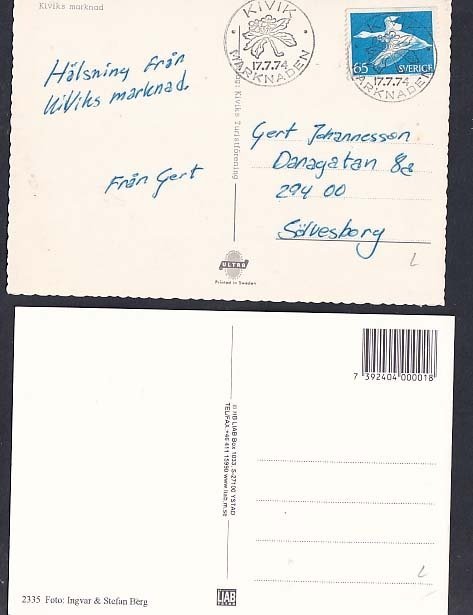 Kiviks marknad
KIVIK
MARKNADEN
17.7.74
65 SVERIGE
17.7.74
MARKNADEN
Hälsning från
Kiviks marknad.
Från Gert
Kiviks Turistförening
Gert Johannesson
Danagatan 8a
294 00
Sölvesborg
L
ULTRA
Printed in Sweden
7 392404 000018
© HB LIAB Box 1033, S-27100 YSTAD
TEL/FAX +46 411 15990 www.liab.m.se
L
2335 Foto: Ingvar & Stefan Berg
LIAB